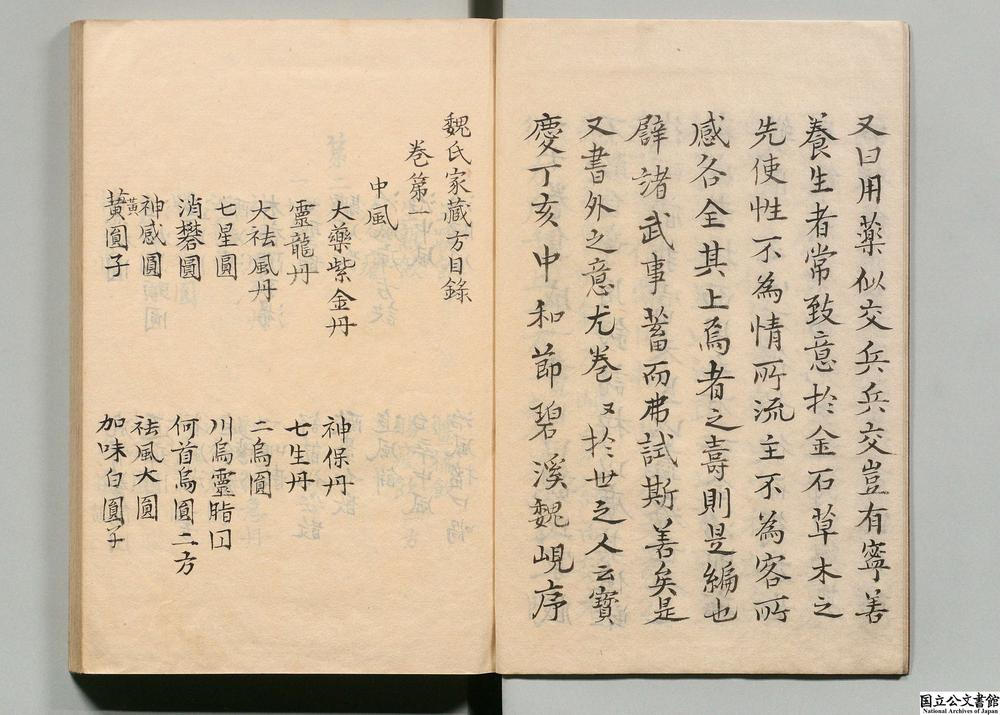 又曰用藥似交兵兵交豈有寧善
養生者常致意於金石草木之
先使性不為情所流主不為客所
感各全其上焉者之壽則是編也
辟諸武事蓄而弗試斯善矣是
又書外之意尤巻又於世之人云寳
慶丁亥中和節碧溪魏峴序
魏氏家藏方目錄
巻第一
中風
大藥紫金丹
神保丹
靈龍丹
七生丹
大祛風丹
二烏圓
七星圓
川烏靈脂圓
消礬圓
何首烏圓二方
神感圓
祛風大圓
黄圓子
黄
加味白圓子
国立公文書館
National Archives of Japan